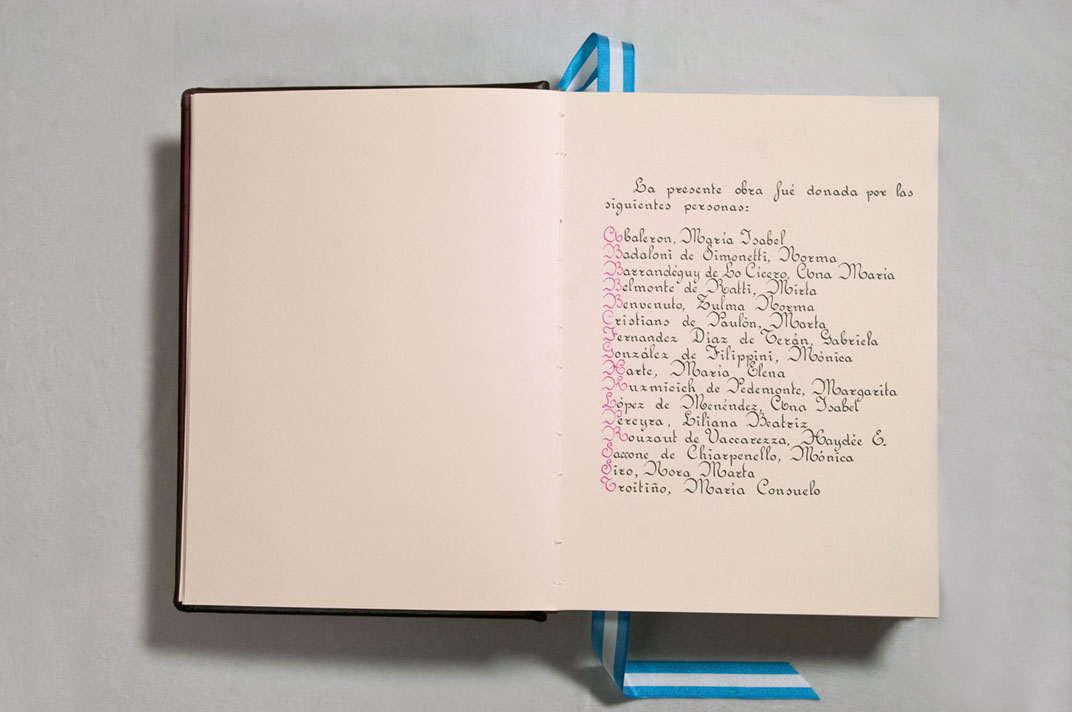 La presente obra fué donada por las
siguientes personas:
Abaleron, María Isabel
Badaloni de Simonetti, Norma
Barrandéguy de Lo Cícero, Ana María
Belmonte de Ratti, Mirta
Benvenuto, Zulma Norma
Cristians de Paulón, Marta
Fernandez Díaz de Terán, Gabriela
González de Filippini, Mónica
Harte, María Elena
Kuzmicich de Pedemonte, Margarita
López de Menéndez, Ana Isabel
Pereyra, Liliana Beatriz
Rouzaut de Vaccarezza, Haydée E.
Saxone de Chiarpenello, Mónica
Siro, Nora Marta
Troitiño, María Consuelo